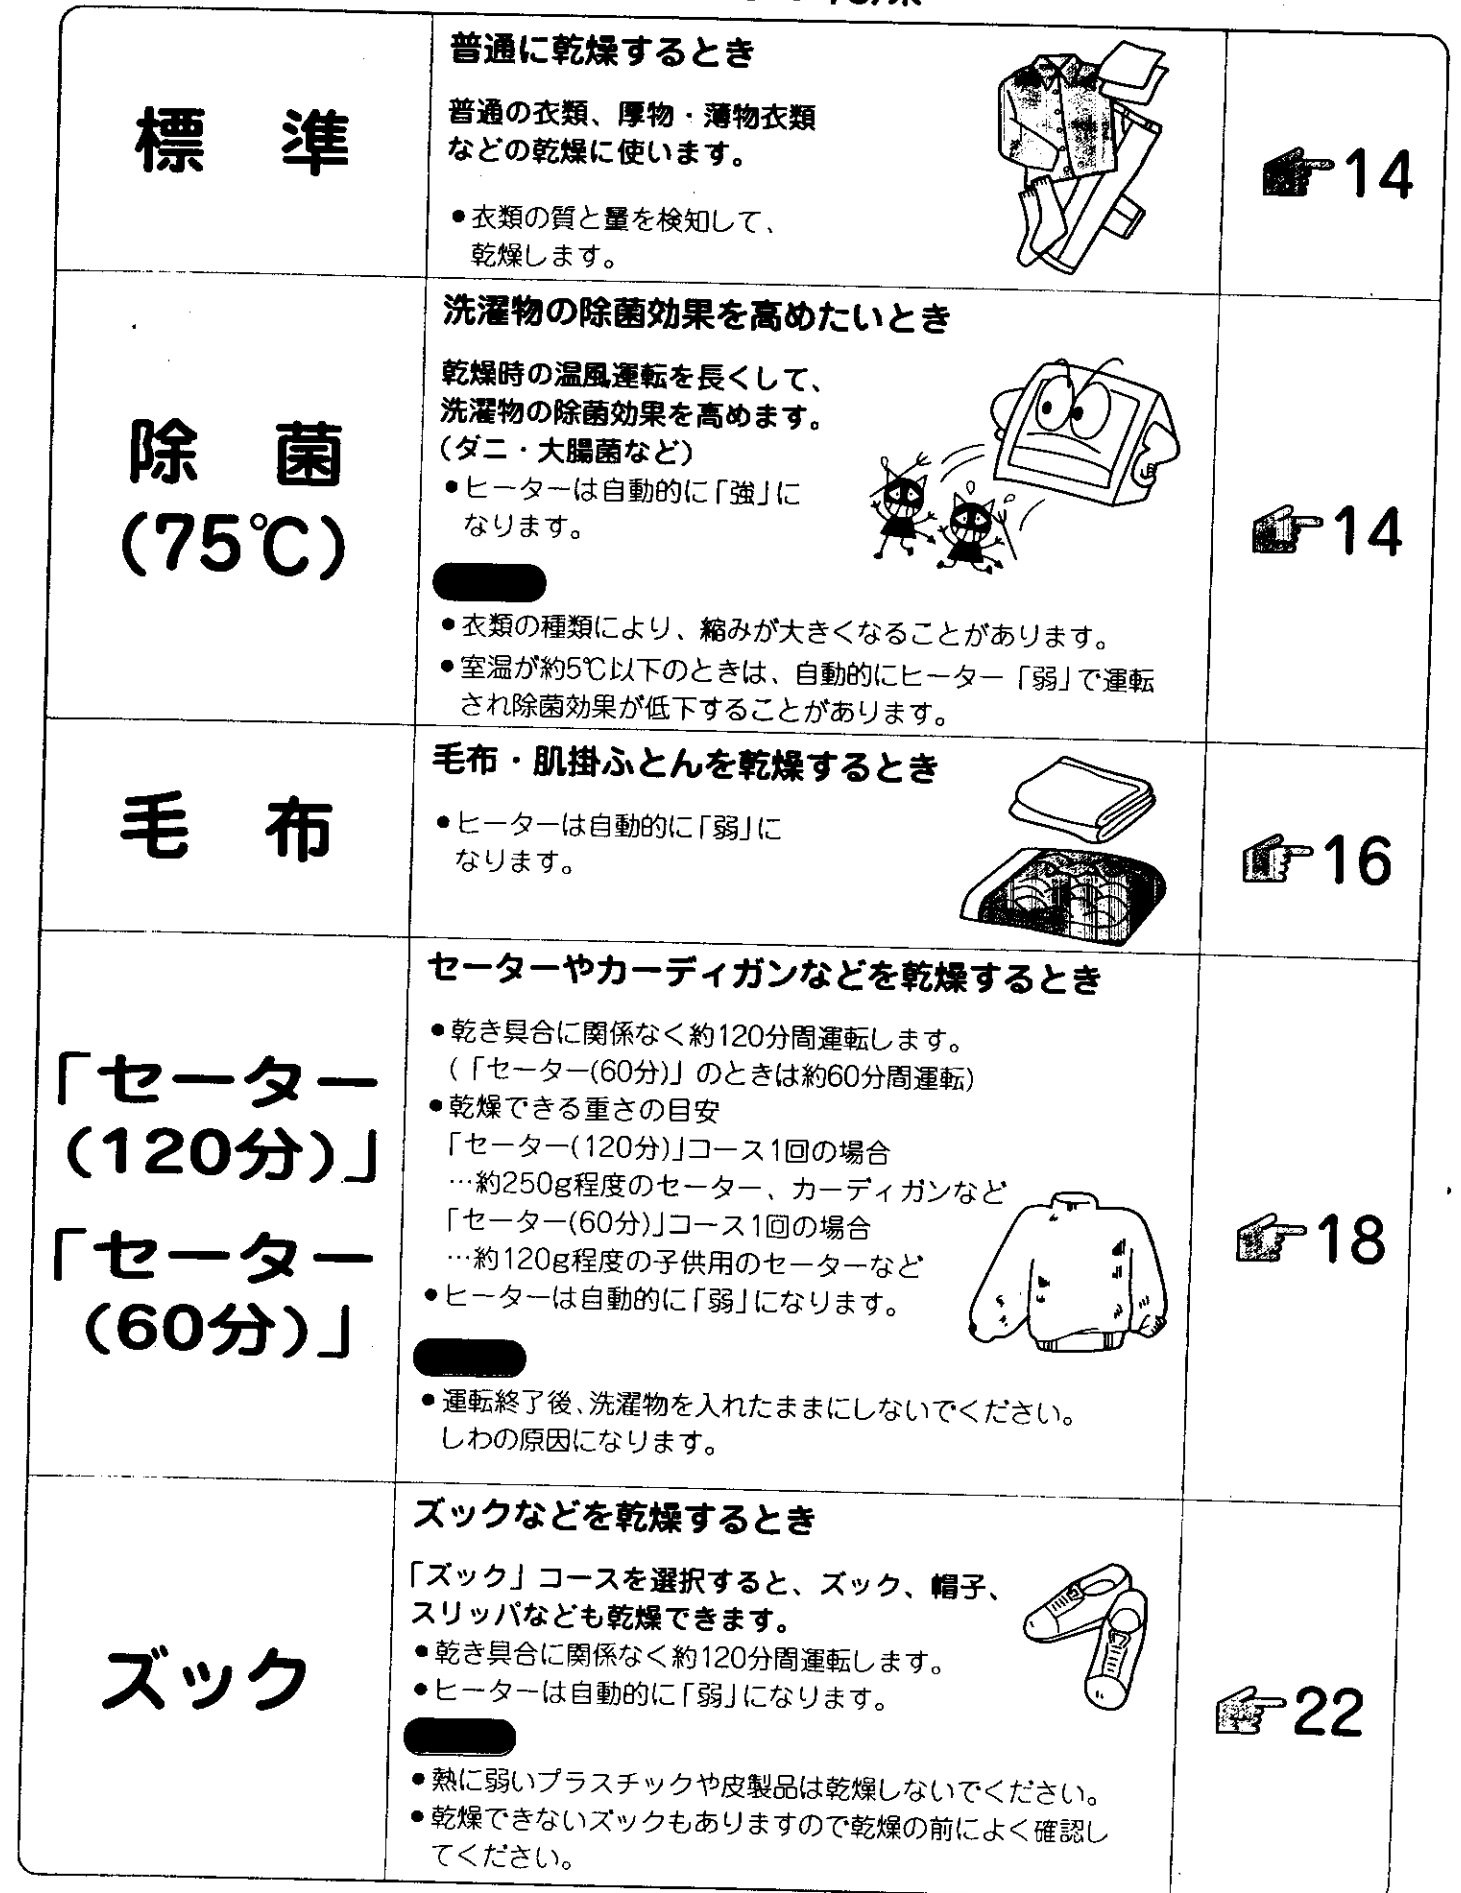 標 準
普通に乾燥するとき
普通の衣類、厚物・薄物衣類
などの乾燥に使います。
●衣類の質と量を検知して、
乾燥します。
14
除 菌
(75℃)
洗濯物の除菌効果を高めたいとき
乾燥時の温風運転を長くして、
洗濯物の除菌効果を高めます。
(ダニ・大腸菌など)
●ヒーターは自動的に「強」に
なります。
●衣類の種類により、縮みが大きくなることがあります。
●室温が約5℃以下のときは、自動的にヒーター「弱」で運転
され除菌効果が低下することがあります。
14
毛 布
毛布・肌掛ふとんを乾燥するとき
●ヒーターは自動的に「弱」に
なります。
16
「セーター
(120分)」
「セーター
(60分)」
セーターやカーディガンなどを乾燥するとき
●乾き具合に関係なく約120分間運転します。
(「セーター(60分)」のときは約60分間運転)
●乾燥できる重さの目安
「セーター(120分)」コース1回の場合
…約250g程度のセーター、カーディガンなど
「セーター(60分)」コース1回の場合
…約120g程度の子供用のセーターなど
●ヒーターは自動的に「弱」になります。
●運転終了後、洗濯物を入れたままにしないでください。
しわの原因になります。
18
ズック
ズックなどを乾燥するとき
「ズック」コースを選択すると、ズック、帽子、
スリッパなども乾燥できます。
●乾き具合に関係なく約120分間運転します。
●ヒーターは自動的に「弱」になります。
●熱に弱いプラスチックや皮製品は乾燥しないでください。
●乾燥できないズックもありますので乾燥の前によく確認し
てください。
22